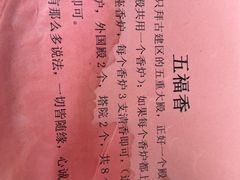 五福香
只拜古建区的五重大殿，正好一个殿
殿共用一个香炉）；如果每个香炉都上
座香炉，每个香炉3支清香即可。
炉，外国殿2个，塔院2个，共8
即可。
有那么多说法，一切皆随缘，心诚